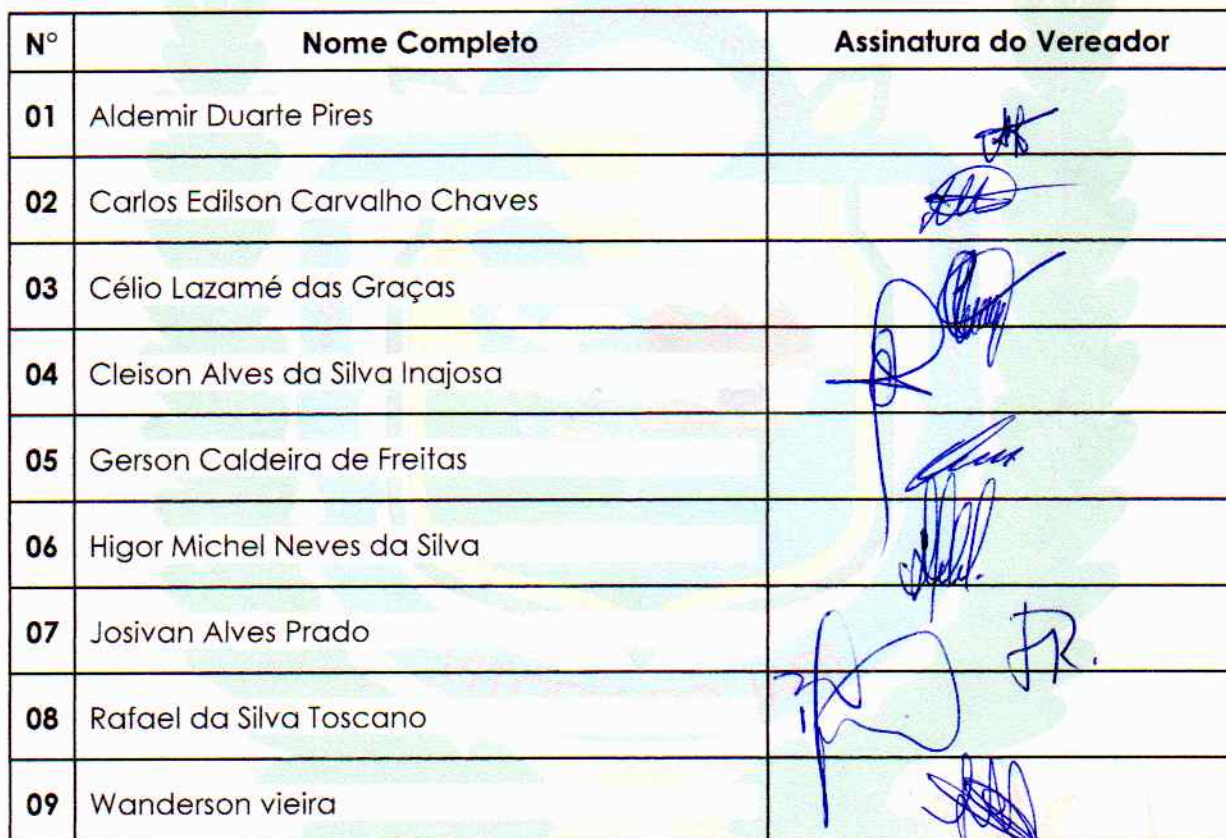 N° Nome Completo Assinatura do Vereador
01 Aldemir Duarte Pires
02 Carlos Edilson Carvalho Chaves
03 Célio Lazamé das Graças
04 Cleison Alves da Silva Inajosa
05 Gerson Caldeira de Freitas
06 Higor Michel Neves da Silva
07 Josivan Alves Prado
08 Rafael da Silva Toscano
09 Wanderson vieira